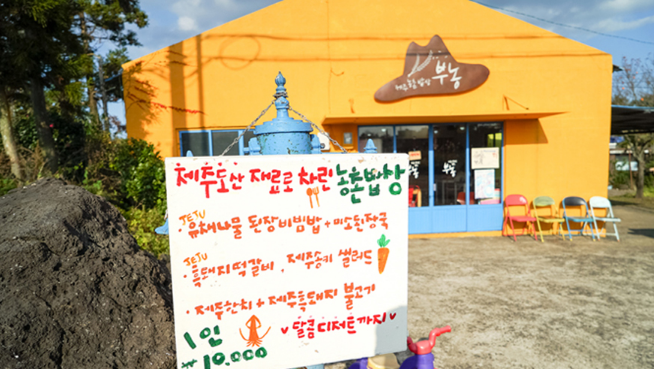 부농
제주도산 재료로 차린 농촌밥상
JEJU
·유채나물 된장비빔밥 + 미소된장국
JEJU
·흑돼지떡갈비 . 제주송키 샐러드
·제주한치 + 제주흑돼지 불고기
1인
₩10,000
달콤디저트까지